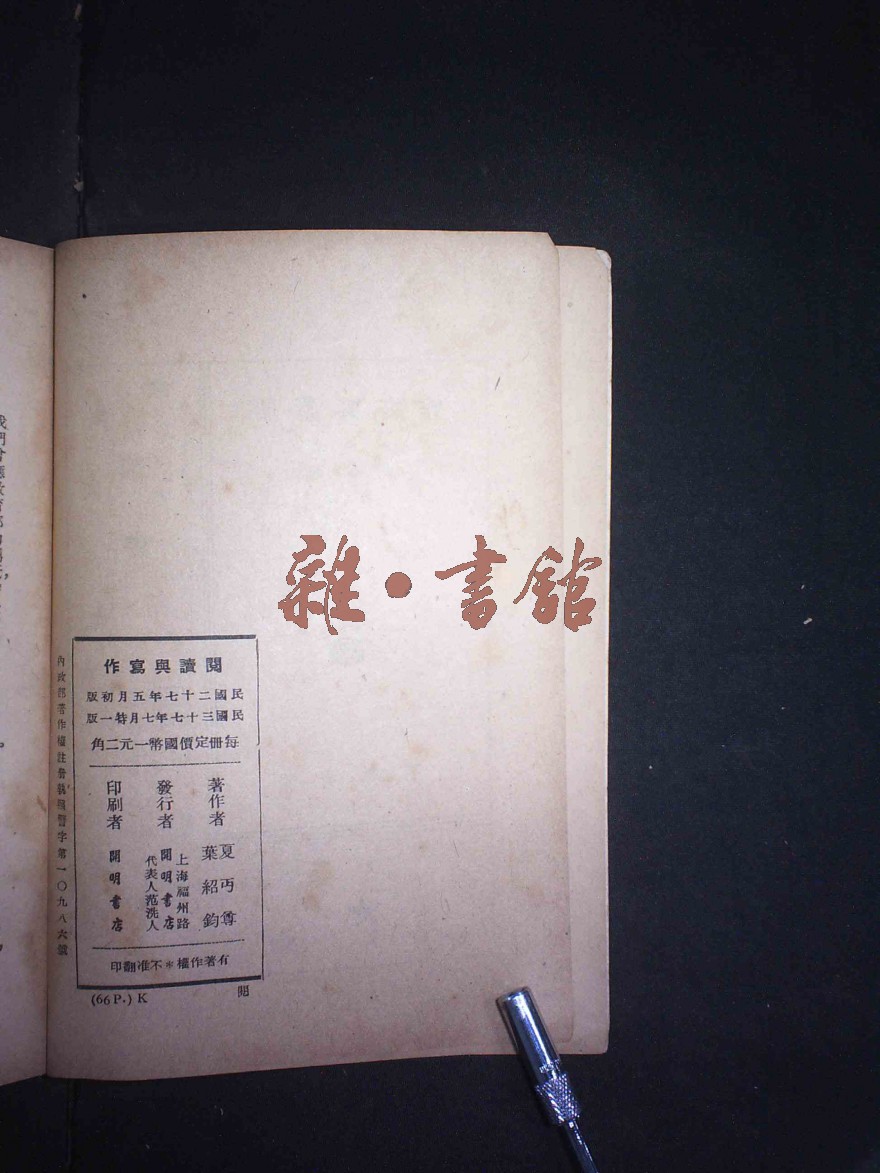 雜・書館
閱讀與寫作
民國二十七年五月初版
民國三十七年七月特一版
每冊定價國幣一元二角
著作者
夏丏尊
葉紹鈞
發行者
上海福州路
開明書店
代表人范洗人
印刷者
開明書店
有著作權＊不准翻印
內政部著作權註冊執照警字第一〇九八六號
(66 P.) K
閱